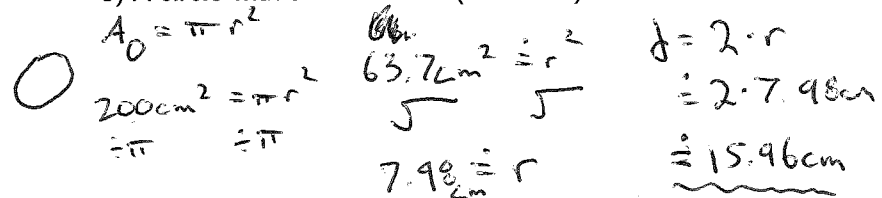 A○ = πr²
200cm² = πr²
÷π ÷π
63.7cm² ≐ r²
√ √
7.98cm ≐ r
d = 2·r
≐ 2·7.98cm
≐ 15.96cm